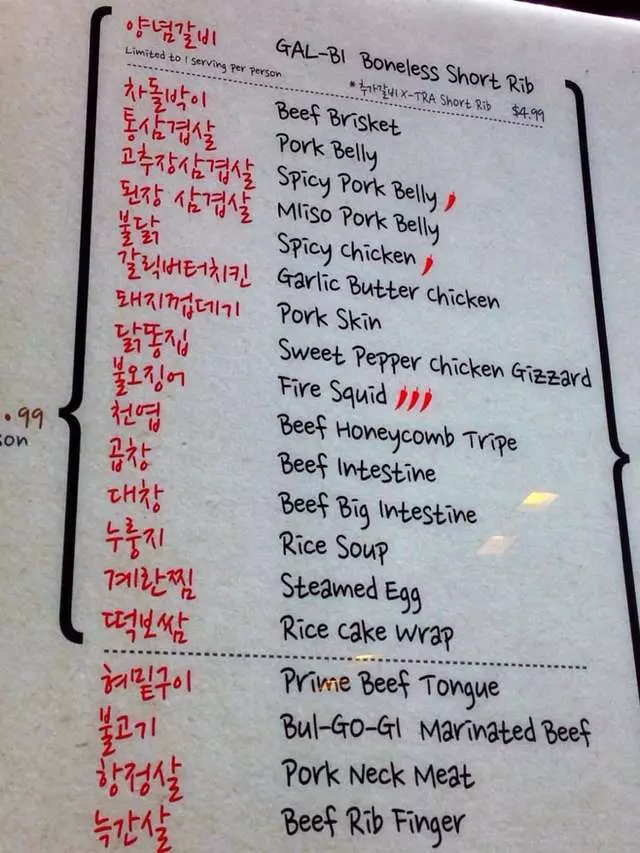 양념갈비 GAL-BI Boneless Short Rib
Limited to 1 serving per person * 추가갈비 X-TRA Short Rib $4.99
차돌박이 Beef Brisket
통삼겹살 Pork Belly
고추장삼겹살 Spicy Pork Belly
된장 삼겹살 MIiso Pork Belly
불닭 Spicy Chicken
갈릭버터치킨 Garlic Butter Chicken
돼지껍데기 Pork Skin
닭똥집 Sweet Pepper Chicken Gizzard
불오징어 Fire Squid
천엽 Beef Honeycomb Tripe
곱창 Beef Intestine
대창 Beef Big Intestine
누룽지 Rice Soup
계란찜 Steamed Egg
떡보쌈 Rice Cake Wrap
.99
son
혀밑구이 Prime Beef Tongue
불고기 Bul-GO-GI Marinated Beef
항정살 Pork Neck Meat
늑간살 Beef Rib Finger